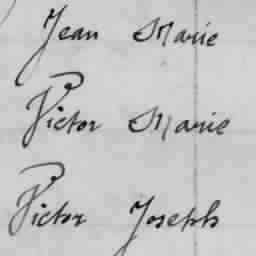 Jean Marie
Victor Marie
Victor Joseph